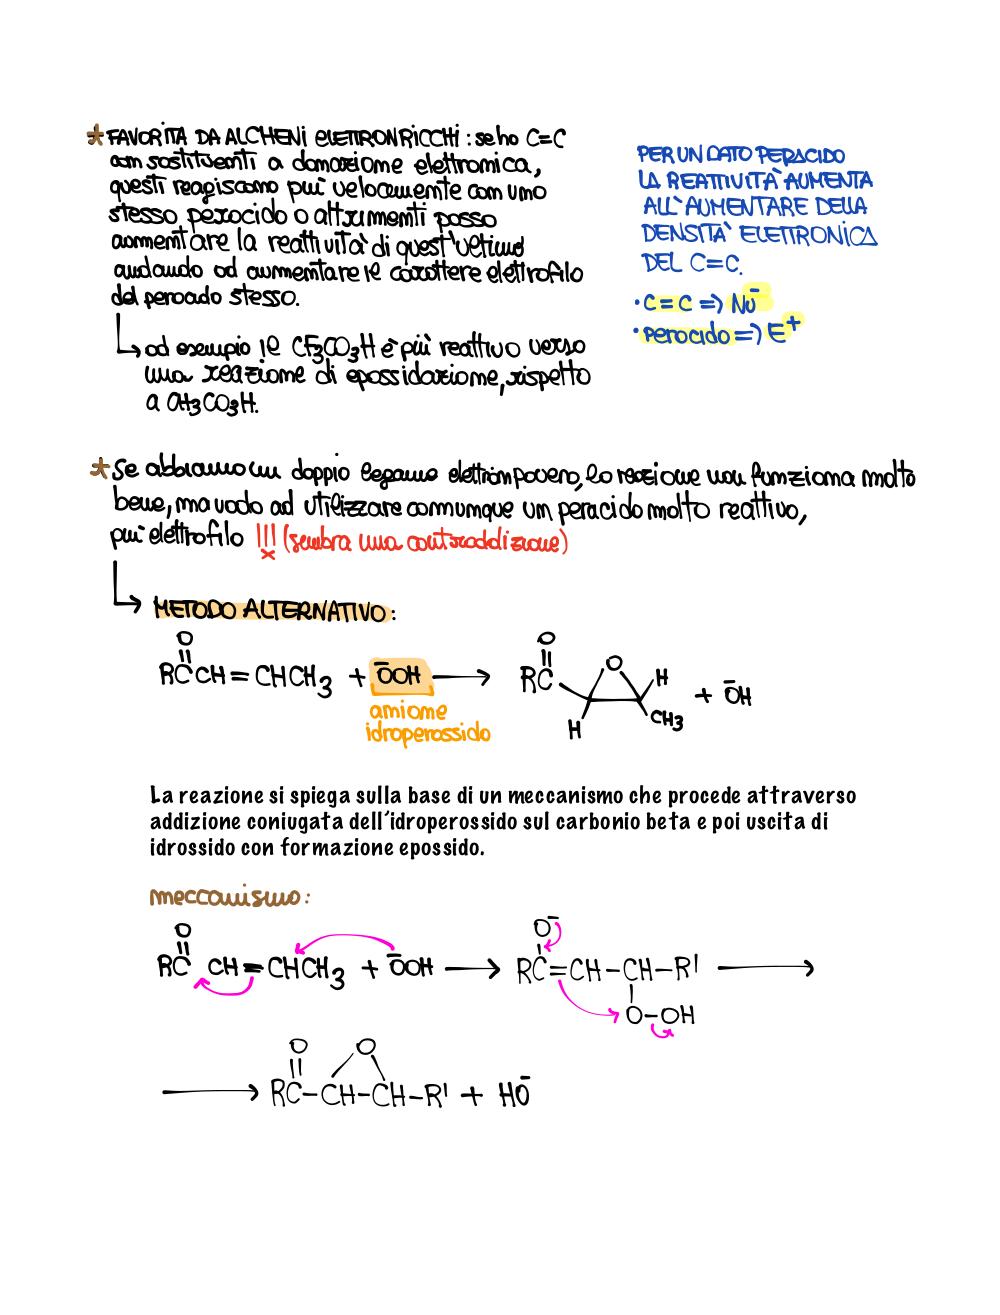 * FAVORITA DA ALCHENI ELETTRONRICCHI: se ho C=C
con sostituenti a donazione elettronica,
questi reagiscono più velocemente con uno
stesso peracido o altrimenti posso
aumentare la reattività di quest'ultimo
andando ad aumentare il carattere elettrofilo
del peracido stesso.
ad esempio il CF3CO3H è più reattivo verso
una reazione di epossidazione, rispetto
a CH3CO3H.
PER UN DATO PERACIDO
LA REATTIVITÀ AUMENTA
ALL'AUMENTARE DELLA
DENSITÀ ELETTRONICA
DEL C=C.
• C=C => Nu⁻
• peracido => E⁺
* Se abbiamo un doppio legame elettronpovero, la reazione non funziona molto
bene, ma vado ad utilizzare comunque un peracido molto reattivo,
più elettrofilo !!! (sembra una contraddizione)
METODO ALTERNATIVO:
O O O
RC CH = CHCH3 + ⁻OOH → RC H + ⁻OH
H CH3
anione
idroperossido
La reazione si spiega sulla base di un meccanismo che procede attraverso
addizione coniugata dell'idroperossido sul carbonio beta e poi uscita di
idrossido con formazione epossido.
meccanismo:
O O⁻
RC CH = CHCH3 + ⁻OOH → RC=CH-CH-R' →
O-OH
O O
→ RC-CH-CH-R' + HO⁻